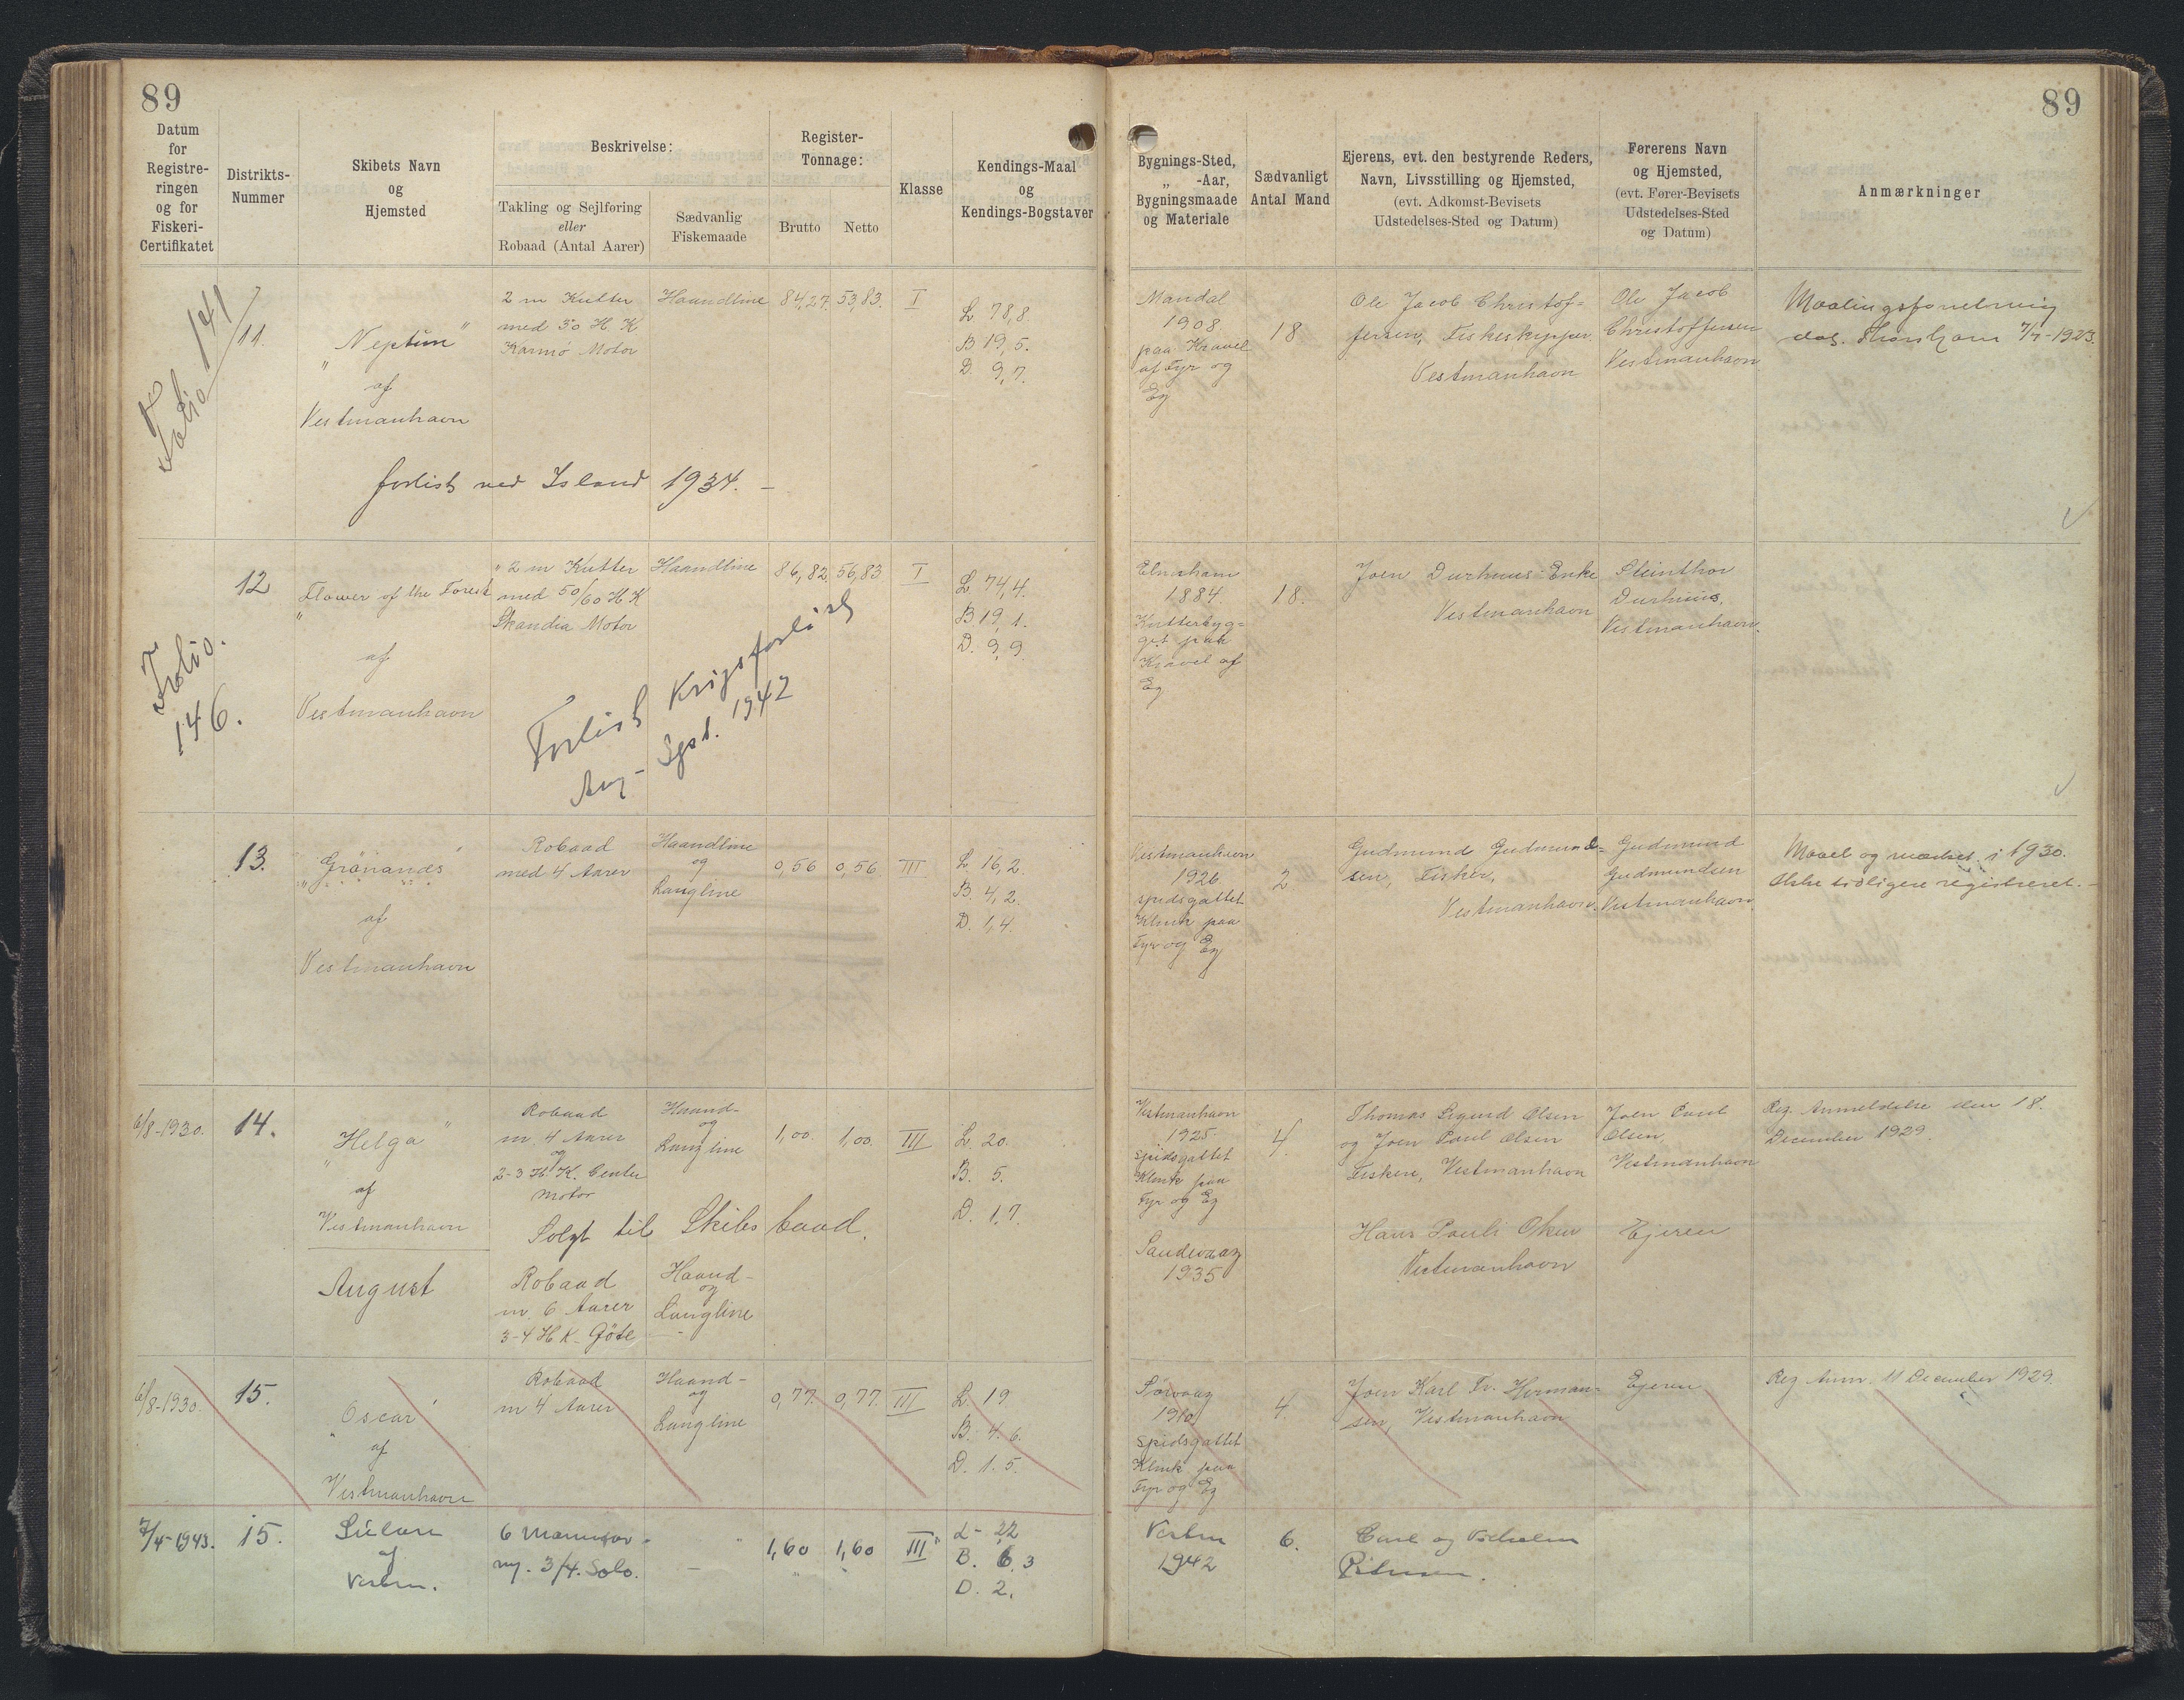 89
89
Datum
for
Registre-
ringen
og for
Fiskeri-
Certifikatet
Distrikts-
Nummer
Skibets Navn
og
Hjemsted
Beskrivelse:
Takling og Sejlføring
eller
Robaad (Antal Aarer)
Sædvanlig
Fiskemaade
Register-
Tonnage:
Brutto
Netto
Klasse
Kendings-Maal
og
Kendings-Bogstaver
Bygnings-Sted,
„ -Aar,
Bygningsmaade
og Materiale
Sædvanligt
Antal Mand
Ejerens, evt. den bestyrende Reders,
Navn, Livsstilling og Hjemsted,
(evt. Adkomst-Bevisets
Udstedelses-Sted og Datum)
Førerens Navn
og Hjemsted,
(evt. Fører-Bevisets
Udstedelses-Sted
og Datum)
Anmærkninger
Folio 141
11.
„Neptun"
af
Vestmanhavn
2 m Kutter
med 30 H K
Karmø Motor
Haandline
84,27
53,83.
I
L 78,8.
B 19,5.
D. 9,7.
Mandal
1908
paa Kravel
af Fyr og
Eg
18
Ole Jacob Christof=
fersen, Fiskeskipper.
Vestmanhavn
Ole Jacob
Christoffersen
Vestmanhavn
Maalingsforretning
dat. Thorshavn 7/7-1923.
forlist ved Island 1934. -
Folio.
146.
12
„Flower of the Forest
af
Vestmanhavn
2 m Kutter
med 50/60 H K
Skandia Motor
Haandline
86,82
56,83
I
L 74,4.
B 19,1.
D. 9,9
1884.
Kutterbyg=
get paa
Kravel af
Eg
18.
Joen Durhuus Enke
Vestmanhavn
Steinthor
Durhuus,
Vestmanhavn.
Forlist Krigsforlist
Aug - Sept. 1942
13.
„Grønanes"
af
Vestmanhavn
Robaad
med 4 Aarer
Haandline
og
Langline
0,56
0,56
III
L. 16,2.
B. 4,2.
D. 1,4.
Vestmanhavn
1926.
spidsgattet
Klink paa
Fyr og Eg
2
Gudmund Gudmund=
sen, Fisker,
Vestmanhavn.
Gudmund
Gudmundsen
Vestmanhavn.
Maalt og mærket i 1930.
Ikke tidligere registreret. -
6/8-1930.
14.
„Helga"
af
Vestmanhavn
Robaad
m. 4 Aarer
og
2-3 H. K. Center
Motor
Haand-
og
Langline
1,00.
1,00.
III
L. 20.
B. 5.
D. 1,7.
Vestmanhavn
1925
spidsgattet
Klink paa
Fyr og Eg
4.
Thomas Sigurd Olsen
og Joen Paul Olsen
Fiskere, Vestmanhavn
Joen Paul
Olsen,
Vestmanhavn
Reg. Anmeldelse den 18.
December 1929.
Solgt til Skibsbaad.
August
Robaad
m. 6 Aarer
3-4 H K - Göte
Haand-
og
Langline
Sandevaag
1935
Hans Pauli
Vestmanhavn
Ejeren
6/8-1930.
15.
„Oscar"
af
Vestmanhavn
Robaad
m 4 Aarer
Haand-
og
Langline
0,77.
0,77.
III
L. 19
B. 4.6.
D. 1.5.
Sørvaag
1910
spidsgattet
Klink paa
Fyr og Eg
4.
Joen Karl Fr. Herman=
sen, Vestmanhavn
Ejeren
Reg Anm. 11 December 1929.
7/4-1943.
15.
af
Vestm.
3/4. Solo.
1,60
1,60
III
L - 22
B. 6,3
D. 2.
Vestm
1942
6.
Carl og Vilhelm